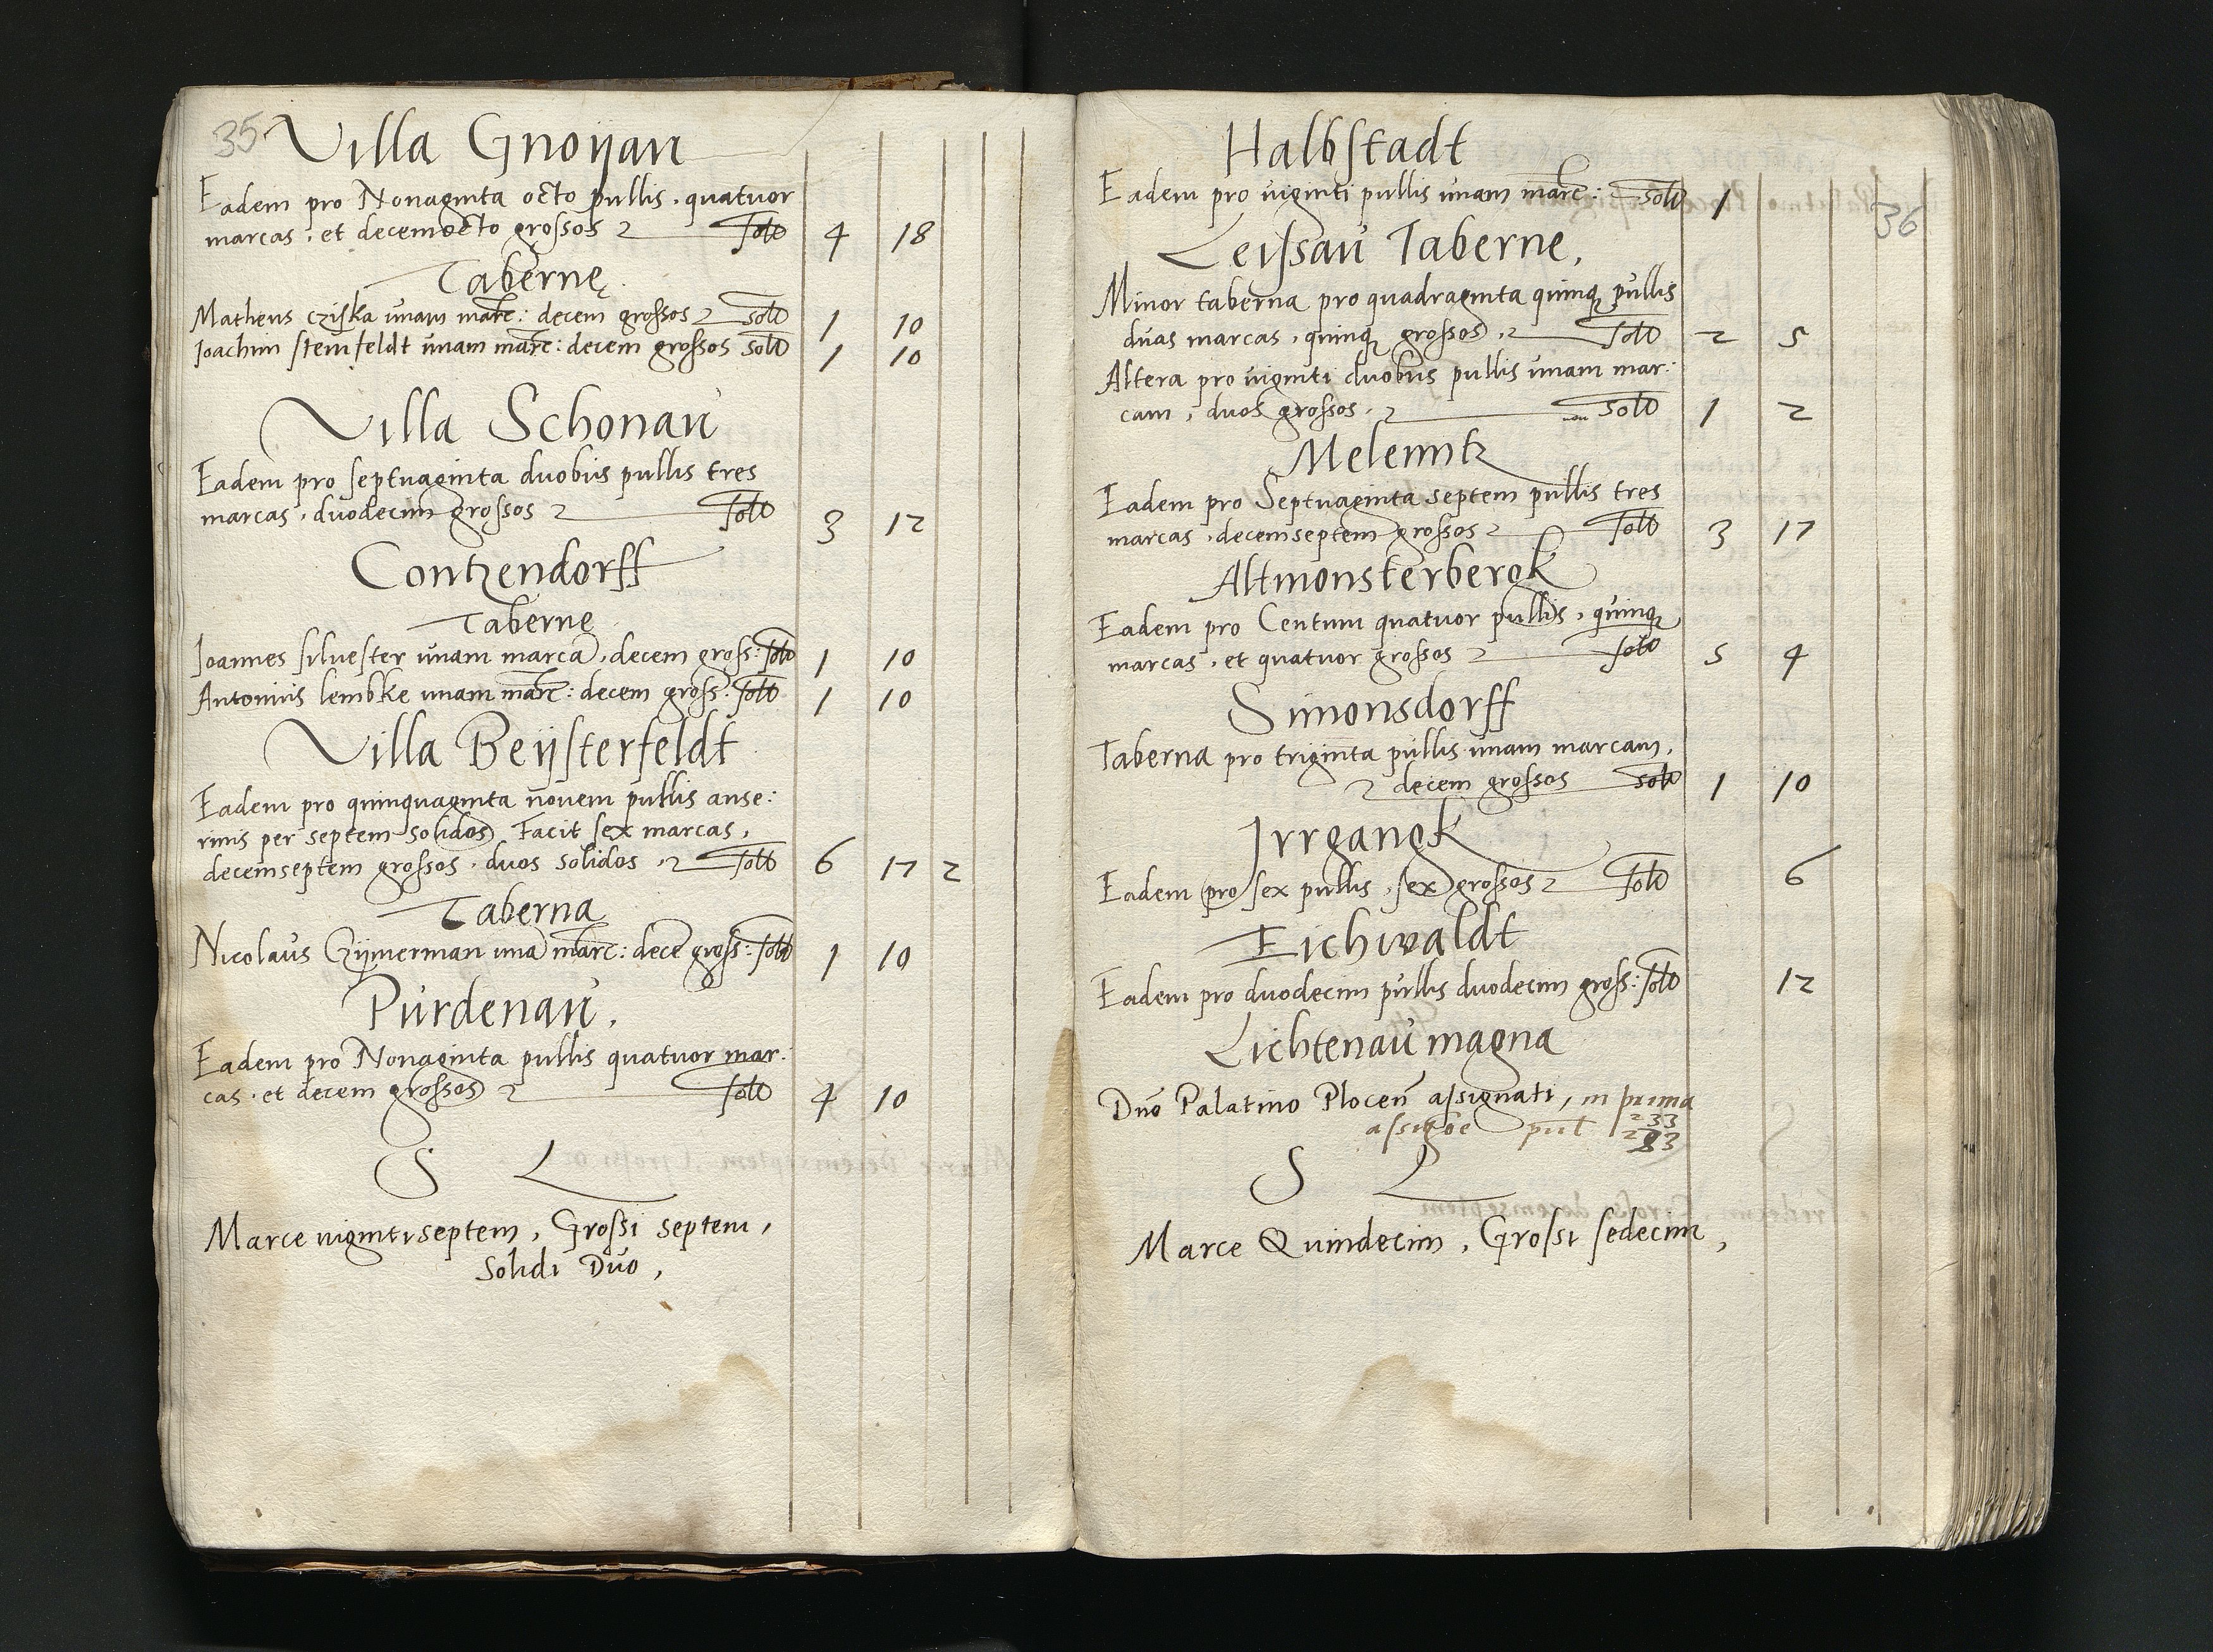 35
Villa Gnoÿan
Eadem pro Nonaginta octo pullis, quatuor
marcas, et decemocto grossos solt 4 18
Tabernę
Matheus cziska unam marc: decem grossos solt 1 10
Joachim steinfeldt unam marc: decem grossos solt 1 10
Villa Schonau
Eadem pro septuaginta duobus pullis tres
marcas, duodecim grossos solt 3 12
Contzendorff
Taberne
Joannes silvester unam marca, decem gross: solt 1 10
Antonius lembke unam marc: decem gross: solt 1 10
Villa Beÿsterfeldt
Eadem pro quinquaginta novem pullis anse:
rinis per septem solidos, Facit sex marcas,
decemseptem grossos, duos solidos, solt 6 17 2
Taberna
Nicolaus Czÿmerman una marc: dece gross: solt 1 10
Purdenau,
Eadem pro Nonaginta pullis quatuor mar:
cas, et decem grossos solt 4 10
S L
Marce vigintiseptem, Grossi septem,
Solidi Duo,
36
Halbstadt
Eadem pro viginti pullis unam marc: solt 1
Leissau Taberne,
Minor taberna pro quadraginta quinq pullis
duas marcas, quinq grossos, solt 2 5
Altera pro viginti duobus pullis unam mar:
cam, duos grossos, non solt 1 2
Melenntz
Eadem pro Septuaginta septem pullis tres
marcas, decemseptem grossos solt 3 17
Altmonsterbergk
Eadem pro Centum quatuor pullis, quinq
marcas, et quatuor grossos solt 5 4
Simonsdorff
Taberna pro triginta pullis unam marcam,
decem grossos solt 1 10
Irrgangk
Eadem pro sex pullis, sex grossos solt 6
Eichwaldt
Eadem pro duodecim pullis duodecim gross: solt 12
Lichtenau magna
Dno Palatino Plocen assignati, in prima
assigoe pul 233
283
S L
Marce Quindecim, Grossi sedecim,